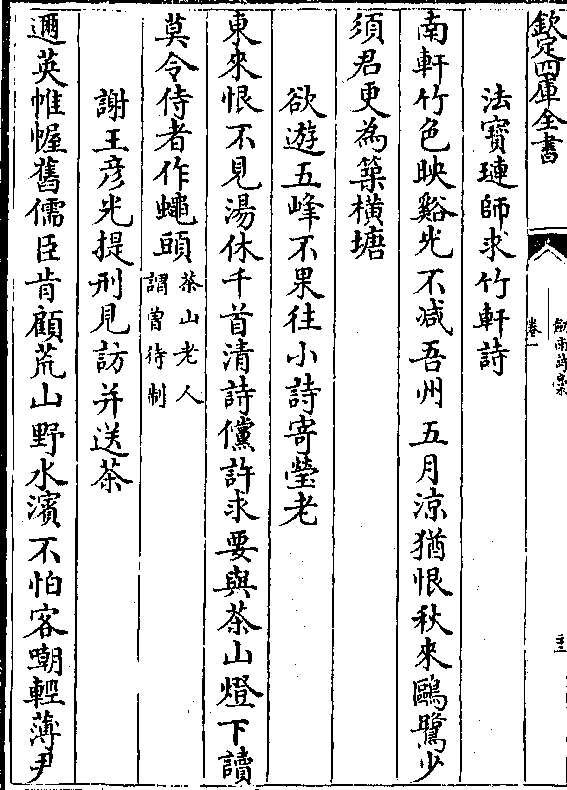 欽定四庫全書
卷一
法寶璉師求竹軒詩
南軒竹色映谿光不減吾州五月涼猶恨秋來鷗鷺少
須君更為築橫塘
欲遊五峰不果往小詩寄瑩老
東來恨不見湯休千首清詩儻許求要與茶山燈下讀
莫令侍者作蠅頭
茶山老人
謂曾待制
謝王彥光提刑見訪并送茶
邇英帷幄舊儒臣肯顧荒山野水濱不怕客嘲輕薄尹